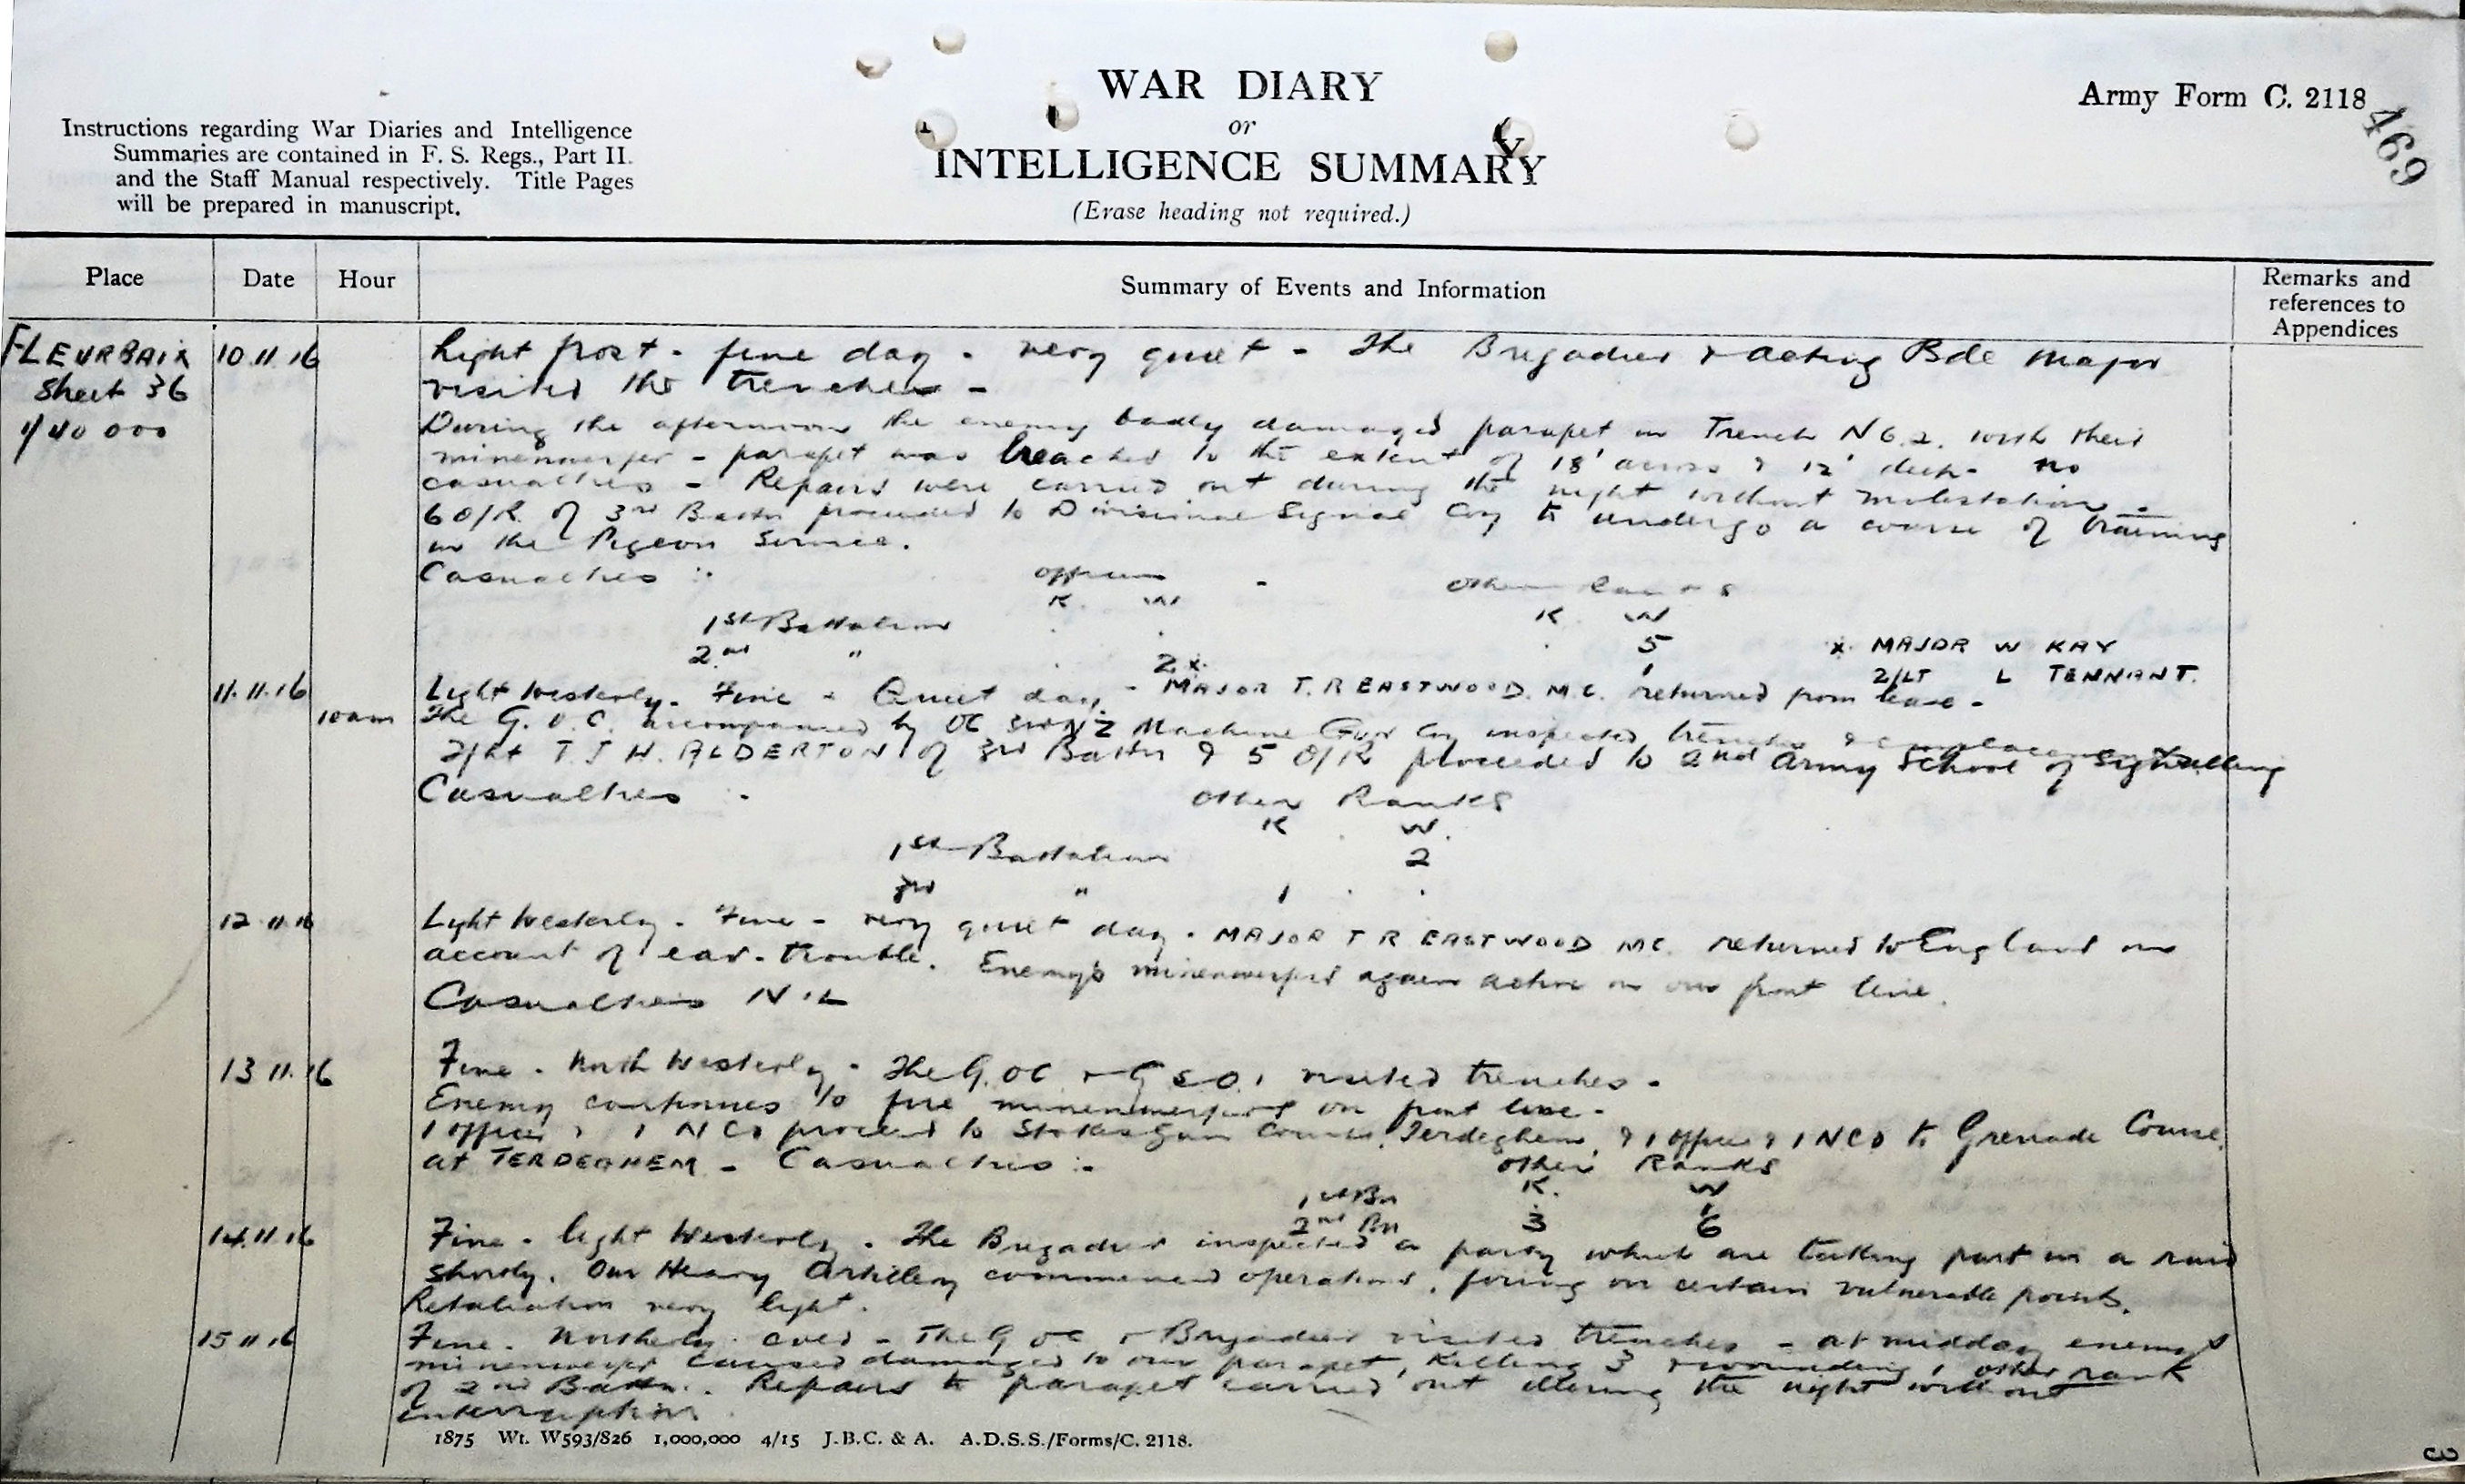 WAR DIARY
or
INTELLIGENCE SUMMARY
(Erase heading not required.)
Army Form C. 2118
469
Instructions regarding War Diaries and Intelligence
Summaries are contained in F. S. Regs., Part II.
and the Staff Manual respectively. Title Pages
will be prepared in manuscript.
Place Date Hour Summary of Events and Information Remarks and references to Appendices
FLEURBAIX 10.11.16 Light frost - fine day - very quiet - The Brigadier & acting Bde Major
Sheet 36 visited the trenches -
1/40 000 During the afternoon the enemy badly damaged parapet in Trench N 6.2. with their
minenwerfer - parapet was breached to the extent of 18' across & 12' deep - no
casualties - Repairs were carried out during the night without molestation -
6 O/R. of 3rd Battn proceeded to Divisional Signal Coy to undergo a course of training
in the Pigeon Service.
Casualties :- Officers - Other Ranks
K. W K W
1st Battalion . . . 5 x MAJOR W KAY
2nd " . 2 x. 1 2/LT L TENNANT.
11.11.16 Light Westerly. Fine - Quiet day - MAJOR T. R EASTWOOD. M.C. returned from leave -
10am The G.O.C. accompanied by OC NZ Machine Gun Coy inspected trenches & emplacements
2/Lt T. J H. ALDERTON of 3rd Battn & 5 O/R proceeded to 2nd Army School of Signalling
Casualties :- Other Ranks
K W.
1st Battalion 2
3rd " 1 . .
12.11.16 Light Westerly - Fine - very quiet day. MAJOR T R EASTWOOD MC. returned to England on
account of ear-trouble. Enemy's minenwerfer again active on our front line.
Casualties NIL
13.11.16 Fine - North Westerly - The G.OC & GSO.1 visited trenches -
Enemy continues to fire minenwerfers on front line -
1 officer & 1 NCO proceed to Stokes Gun Course, Terdeghem, & 1 officer & 1 NCO to Grenade Course
at TERDEGHEM - Casualties :- Other Ranks
K. W
1st Bn
2nd Bn 3 6
14.11.16 Fine - light Westerly. The Brigadier inspected a party which are taking part in a raid
shortly. Our Heavy Artillery commenced operations, firing on certain vulnerable points.
Retaliation very light.
15.11.16 Fine. Northerly - The G OC & Brigadier visited trenches - at midday enemy
minenwerfer caused damaged to our parapet, killing 3 & wounding 1 other rank
of 2nd Battn. Repairs to parapet carried out during the night without
interruption.
1875 Wt. W593/826 1,000,000 4/15 J.B.C. & A. A.D.S.S./Forms/C. 2118.
3